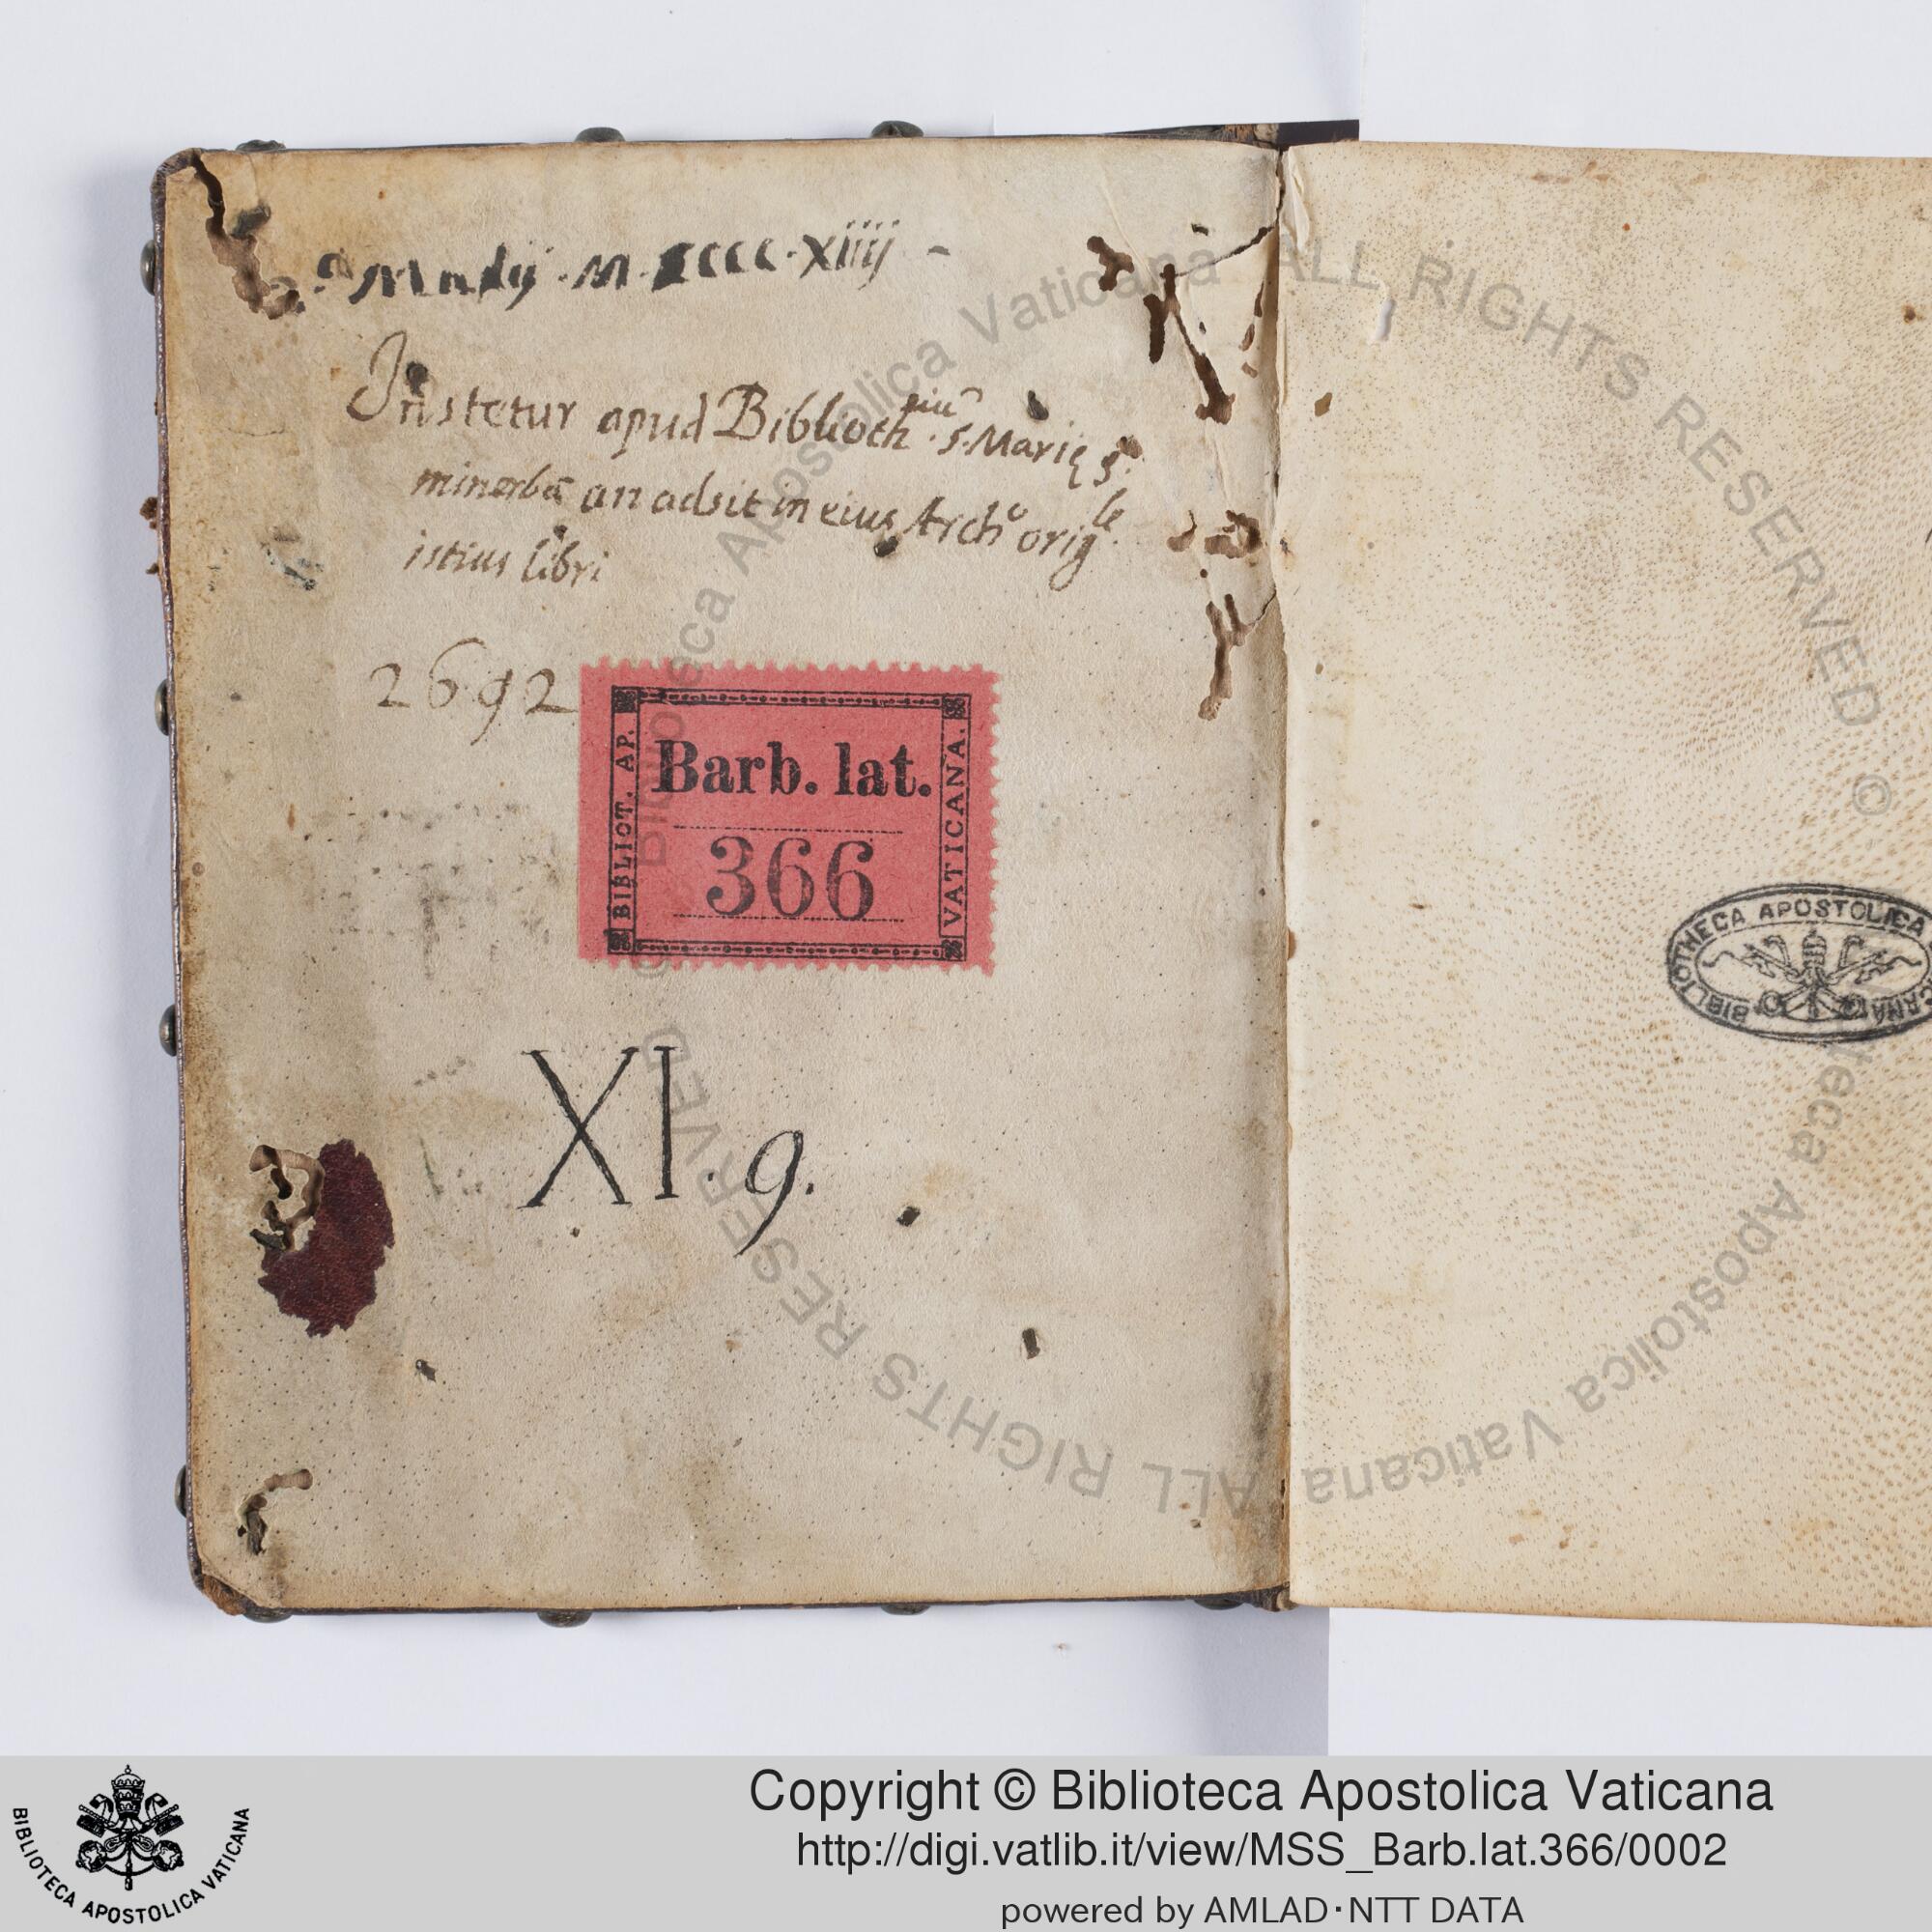 Madij · M · CCCC · XIIIJ -
Instetur apud Biblioth.riũ S. Marię S.
minerbã an adsit in eius Arch.o orig.le
istius libri
2692
BIBLIOT. AP. VATICANA.
Barb. lat.
366
XI. 9.
BIBLIOTHECA APOSTOLICA VATICANA
© Biblioteca Apostolica Vaticana ALL RIGHTS RESERVED
© Biblioteca Apostolica Vaticana ALL RIGHTS RESERVED
BIBLIOTECA APOSTOLICA VATICANA
Copyright © Biblioteca Apostolica Vaticana
http://digi.vatlib.it/view/MSS_Barb.lat.366/0002
powered by AMLAD·NTT DATA